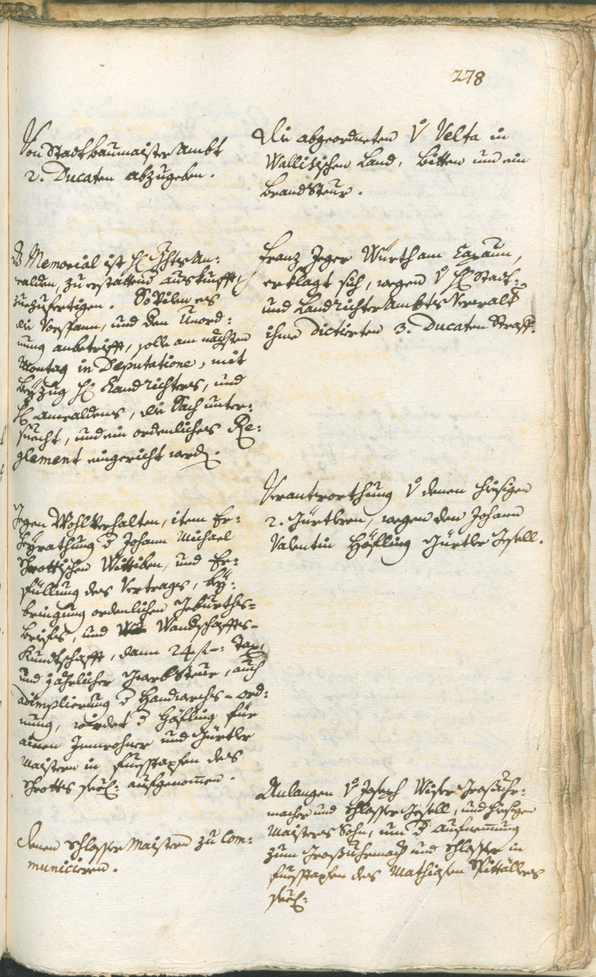 278
Von Stadtbaumaister Ambt
2. Ducaten abzugeben.
Die abgeordneten V Velta in
Wallisischen Land, bitten umb ein
Brandsteur.
Memorial ist H: An:
walden, zu erstatten auskunfft
zuezufertigen. Sovil aber
die Vorspann, und den Unord:
nung anbetrifft, solle am nächsten
Montag in Deputatione, mit
beyzug H: Landrichters, und
H: Anwaldens, die Sach unter:
suecht, und ein ordenliches Re:
glement eingericht werden.
Franz Jeger Würth am
erklagt sich, wegen V H: Stadt:
und Landrichter Ambts Verwalt
ihme dictirten 3. Ducaten Straff.
Verantworthung V denen hiesigen
2. Gürtlern, wegen dem Johann
Valentin Höfling Gürtler Gesell.
Gegen Wohlverhalten, item Er:
heyrathung d Johann Michael
Wittiben, und Er:
füllung des Vertrages, bey:
bringung ordenlichen Geburths=
briefes, und Wandschaffts=
Kundtschafft, dann 24 f: Tax,
und jährlicher Steur, auch
adimplierung d Handwerchs=ord:
nung, würdet d Höfling für
ainen Innwohner und Gürtler
Maistern in fuesstapfen des
seel: aufgenommen.
Anlangen V Joseph Großuhr:
macher und Schlosser Gesell, und hiesigen
Maisters Sohn, umb d aufnemung
zum Großuhrmach und Schlosser in
fuesstapfen des Mathiasen
seel:
Denen Schlosser Maistern zu com:
municieren.